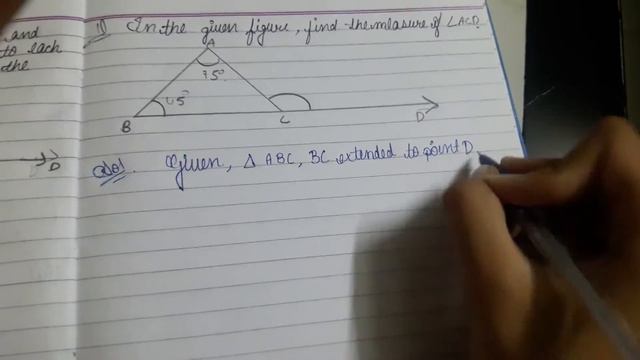 and
to each
the
D
1) In the given figure, find the measure of ∠ACD.
A
75°
45°
B
C
D
Sol. Given, △ ABC, BC extended to point D